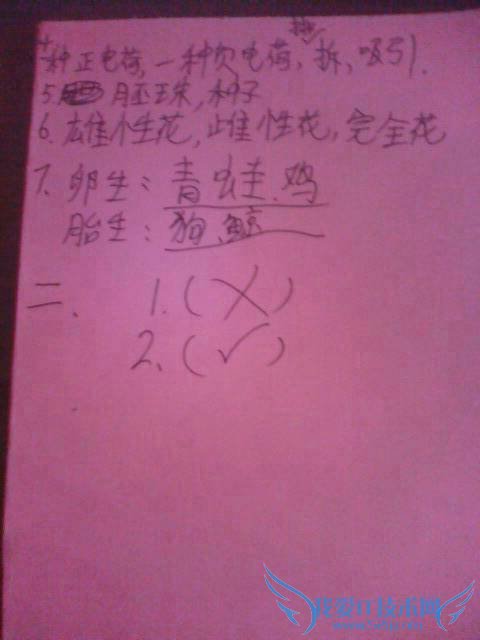 一种正电荷,一种欠电荷,拆,吸引.
5. 胚珠,种子
6. 雄性花,雌性花,完全花
7. 卵生:青蛙、鸡
胎生:狗、鲸
二、 1.(×)
2.(√)
我爱IT技术网